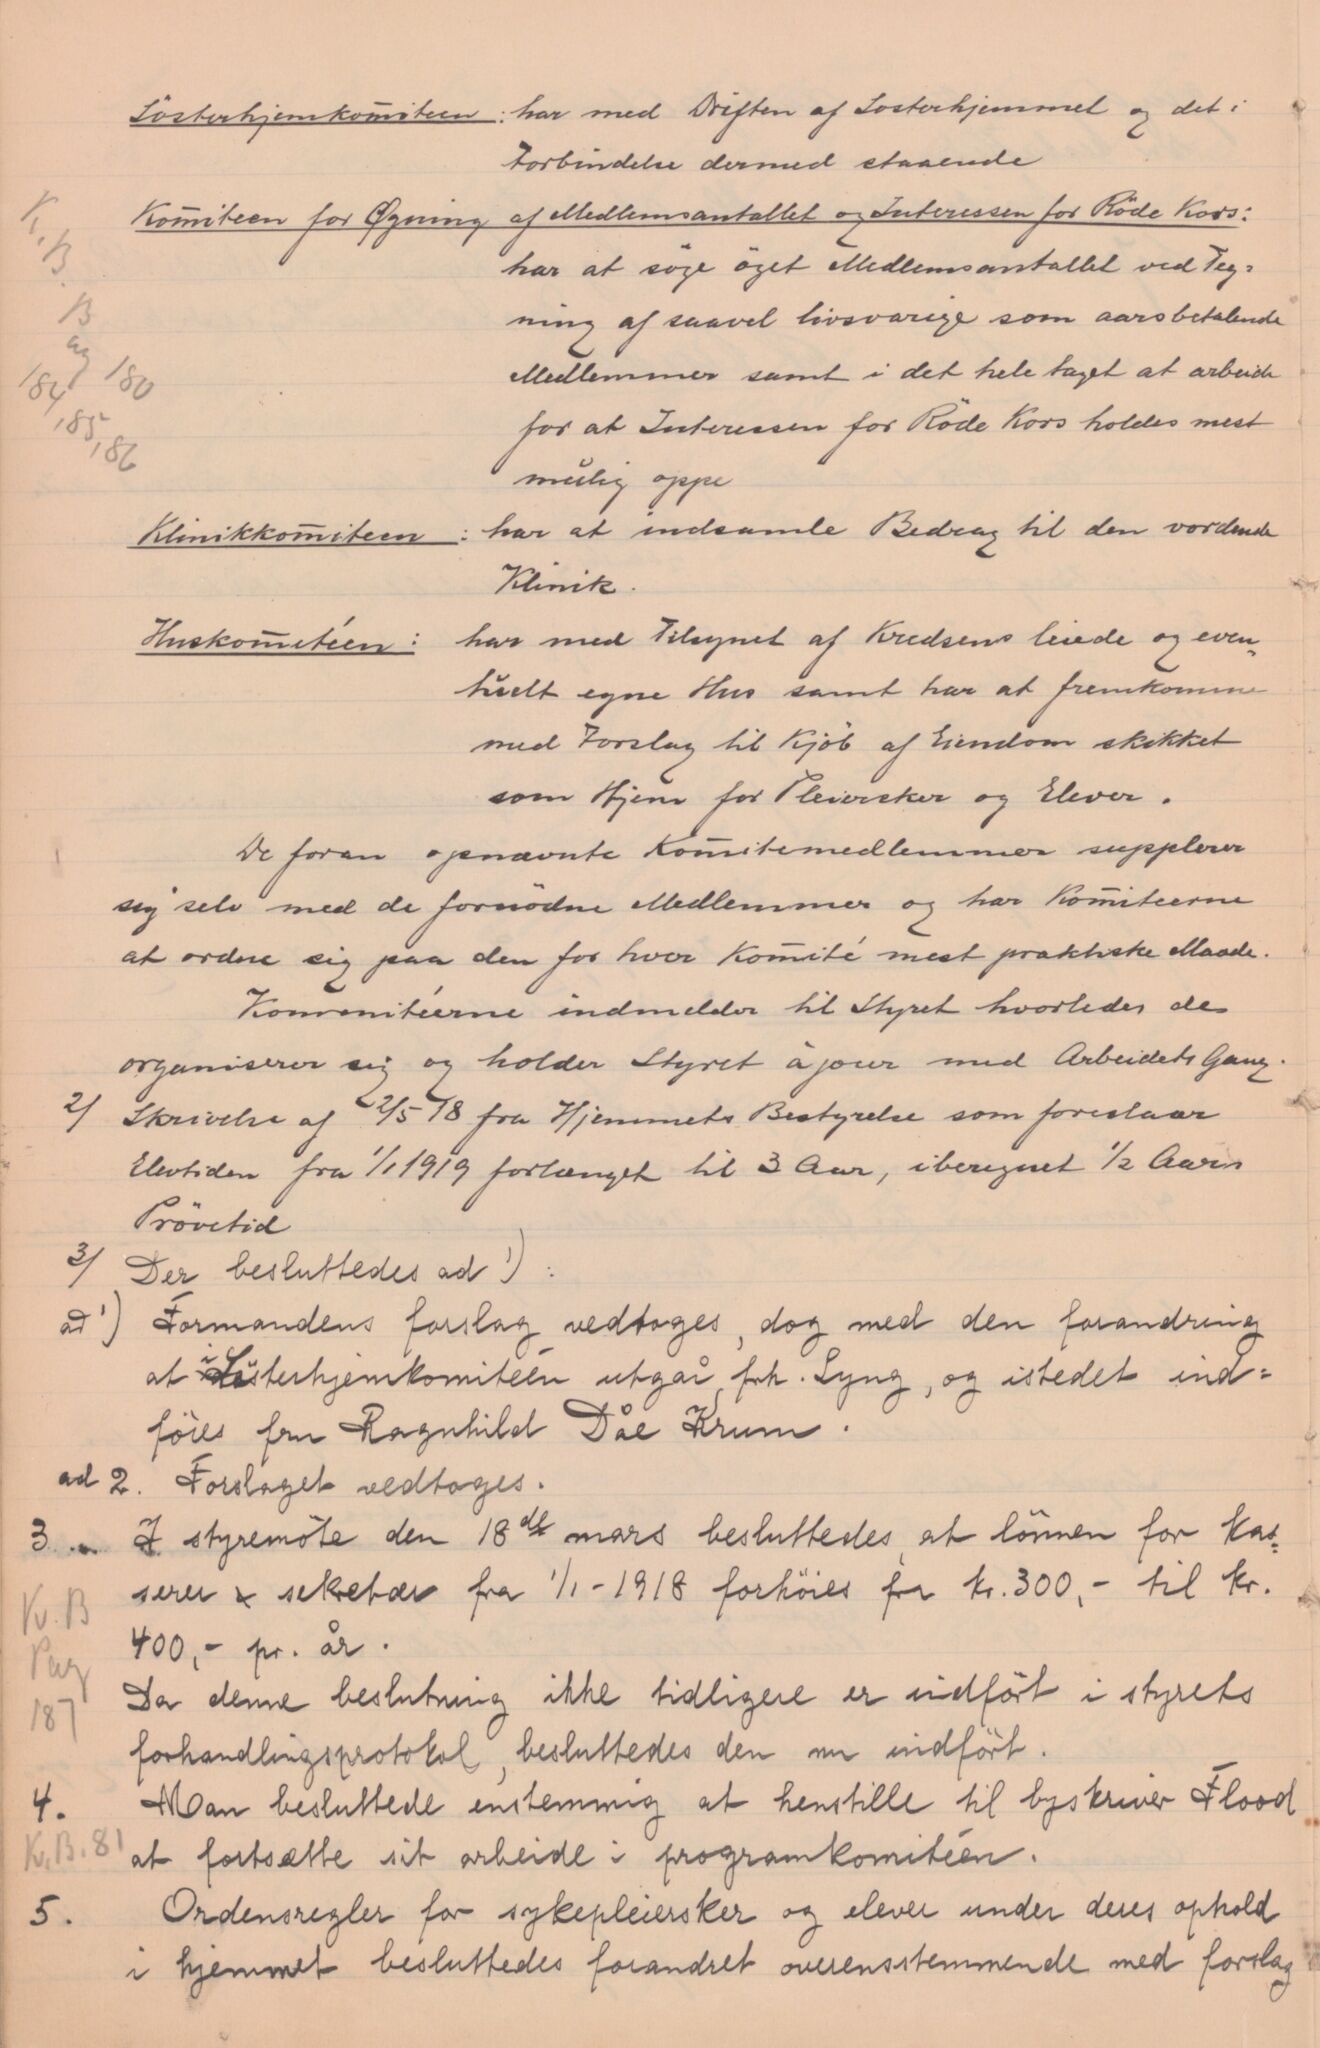 Sösterhjemkom̅iteen : har med Driften af Sosterhjemmet og det i
Forbindelse dermed staaende
Kom̅iteen for Øgning af Medlemsantallet og Interessen for Röde Kors:
har at söge öget Medlemsantallet ved Teg-
ning af saavel livsvarige som aarsbetalende
Medlemmer samt i det hele taget at arbeide
for at Interessen for Röde Kors holdes mest
mulig oppe
K. B.
B
ag
184 180
185
186
Klinikkom̅iteen : har at indsamle Bedrag til den vordende
Klinik.
Huskom̅itéen : har med Tilsynet af Kredsens leiede og even-
tuelt egne Hus samt har at fremkomme
med Forslag til Kjöb af Eiendom skikket
som Hjem for Pleiersker og Elever.
De foran opnævnte Kom̅itemedlemmer supplerer
sig selv med de fornödne Medlemmer og har Kom̅iteerne
at ordne sig paa den for hver Kom̅ité mest praktiske Maade.
Kommitéerne indmelder til Styret hvorledes de
organiserer sig og holder Styret à jour med Arbeidets Gang.
2/ Skrivelse af 2/5 18 fra Hjemmets Bestyrelse som foreslaar
Elevtiden fra 1/1 1919 forlænget til 3 Aar, iberegnet 1/2 Aars
Prövetid
3/ Der besluttedes ad 1) :
ad 1) Formandens forslag vedtoges, dog med den forandring
at i Sösterhjemkomitéen utgår frk. Lyng, og istedet ind-
föies fru Ragnhild Dåe Krum.
ad 2. Forslaget vedtoges.
3 .. I styremöte den 18de mars besluttedes at lönnen for kas-
serer & sekretær fra 1/1 - 1918 forhöies fra kr. 300,- til kr.
400,- pr. år.
Kv. B
Pag
187
Da denne beslutning ikke tidligere er indfört i styrets
forhandlingsprotokol, besluttedes den nu indfört.
4. Man besluttede enstemmig at henstille til byskriver Flood
Kv. B. 81
at fortsætte sit arbeide i programkomitéen.
5. Ordensregler for sykepleiersker og elever under deres ophold
i hjemmet besluttedes forandret overensstemmende med forslag